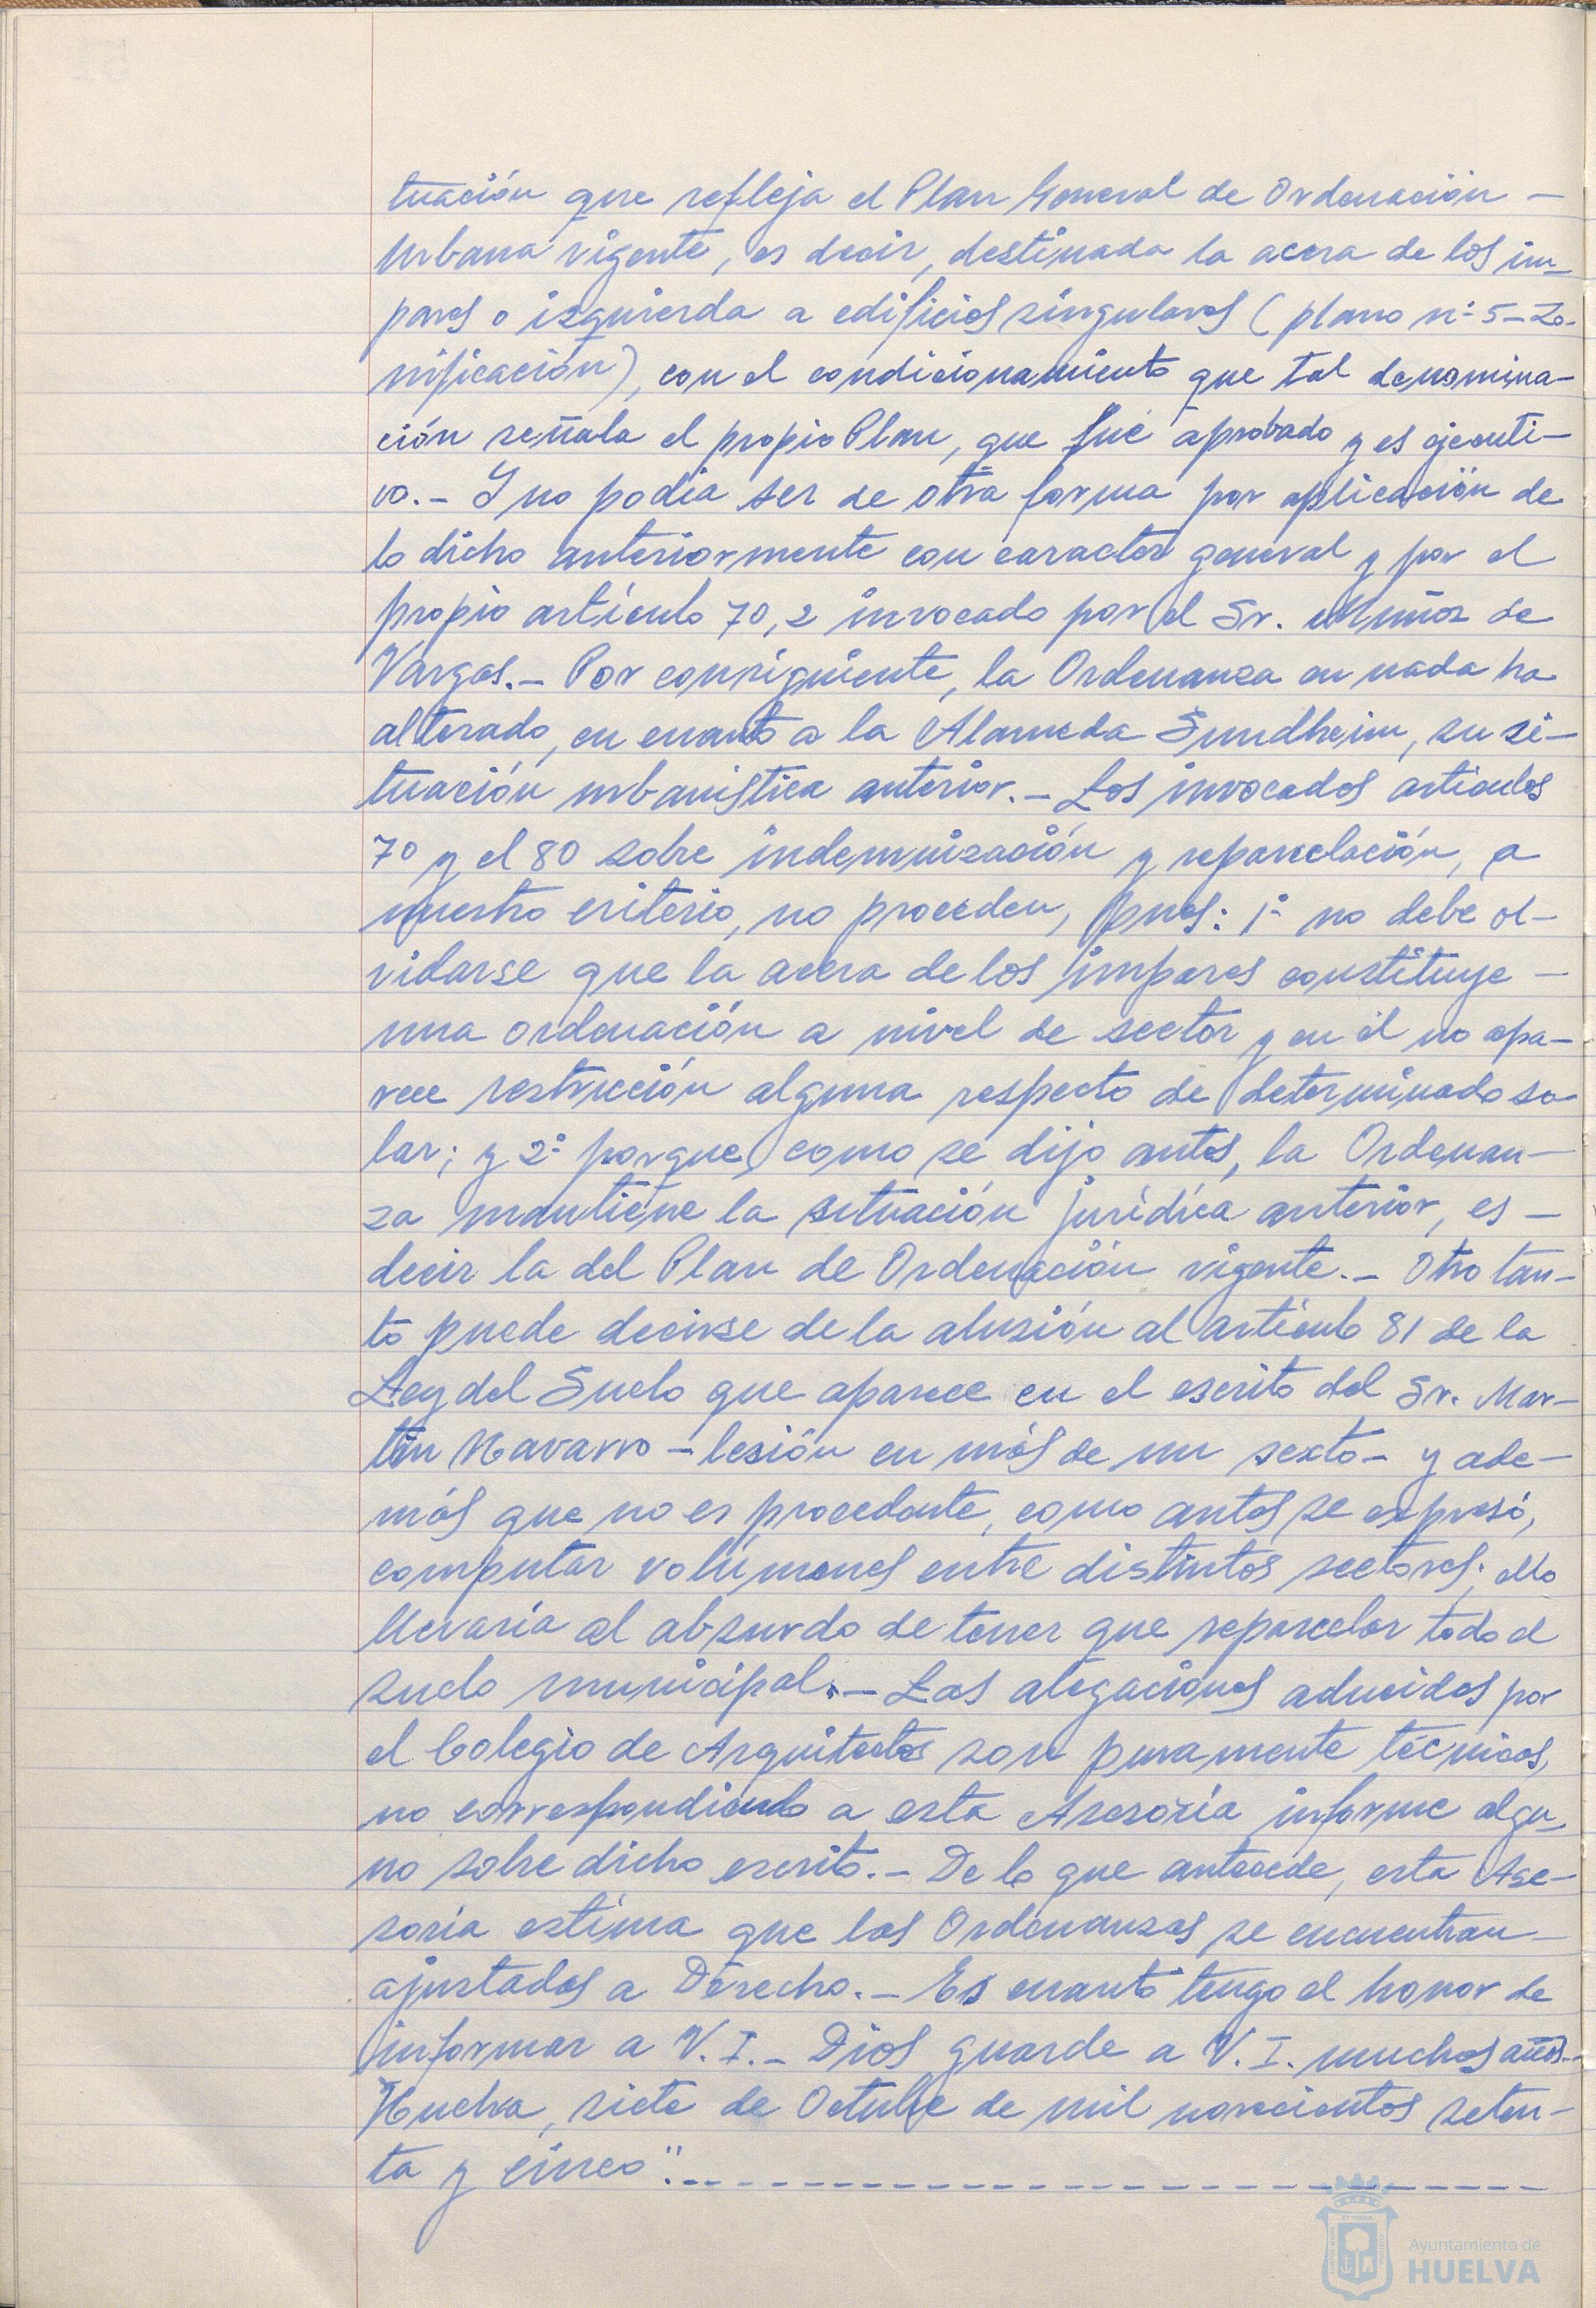 tuación que refleja el Plan General de Ordenación -
Urbana vigente, es decir, destinada la acera de los im-
pares o izquierda a edificios singulares (plano nº 5 - Zo-
nificación), con el condicionamiento que tal denomina-
ción señala el propio Plan, que fué aprobado y es ejecuti-
vo.- Y no podia ser de otra forma por aplicación de
lo dicho anteriormente con caracter general y por el
propio artículo 70,2 invocado por el Sr. Muñoz de
Vargas.- Por consiguiente, la Ordenanza en nada ha
alterado, en cuanto a la Alameda Sundheim, su si-
tuación urbanistica anterior.- Los invocados articulos
70 y el 80 sobre indemnización y reparcelación, a
nuestro criterio, no proceden, pues: 1º no debe ol-
vidarse que la acera de los impares constituye -
una ordenación a nivel de sector y en él no apa-
rece restricción alguna respecto de determinado so-
lar; y 2º porque, como se dijo antes, la Ordenan-
za mantiene la situación jurídica anterior, es -
decir la del Plan de Ordenación vigente.- Otro tan-
to puede decirse de la alusión al artículo 81 de la
Ley del Suelo que aparece en el escrito del Sr. Mar-
tin Navarro - lesión en más de un sexto - y ade-
más que no es procedente, como antes se expresó,
computar volúmenes entre distintos sectores; ello
llevaría al absurdo de tener que reparcelar todo el
suelo municipal.- Las alegaciones aducidas por
el Colegio de Arquitectos son puramente técnicas,
no correspondiendo a esta Asesoría informe algu-
no sobre dicho escrito.- De lo que antecede, esta Ase-
soría estima que las Ordenanzas se encuentran -
ajustadas a Derecho.- Es cuanto tengo el honor de
informar a V.I.- Dios guarde a V.I. muchos años.-
Huelva, siete de Octubre de mil novecientos seten-
ta y cinco".- - - - - - - - - - - - - - - - - - - - - -
Ayuntamiento de
HUELVA